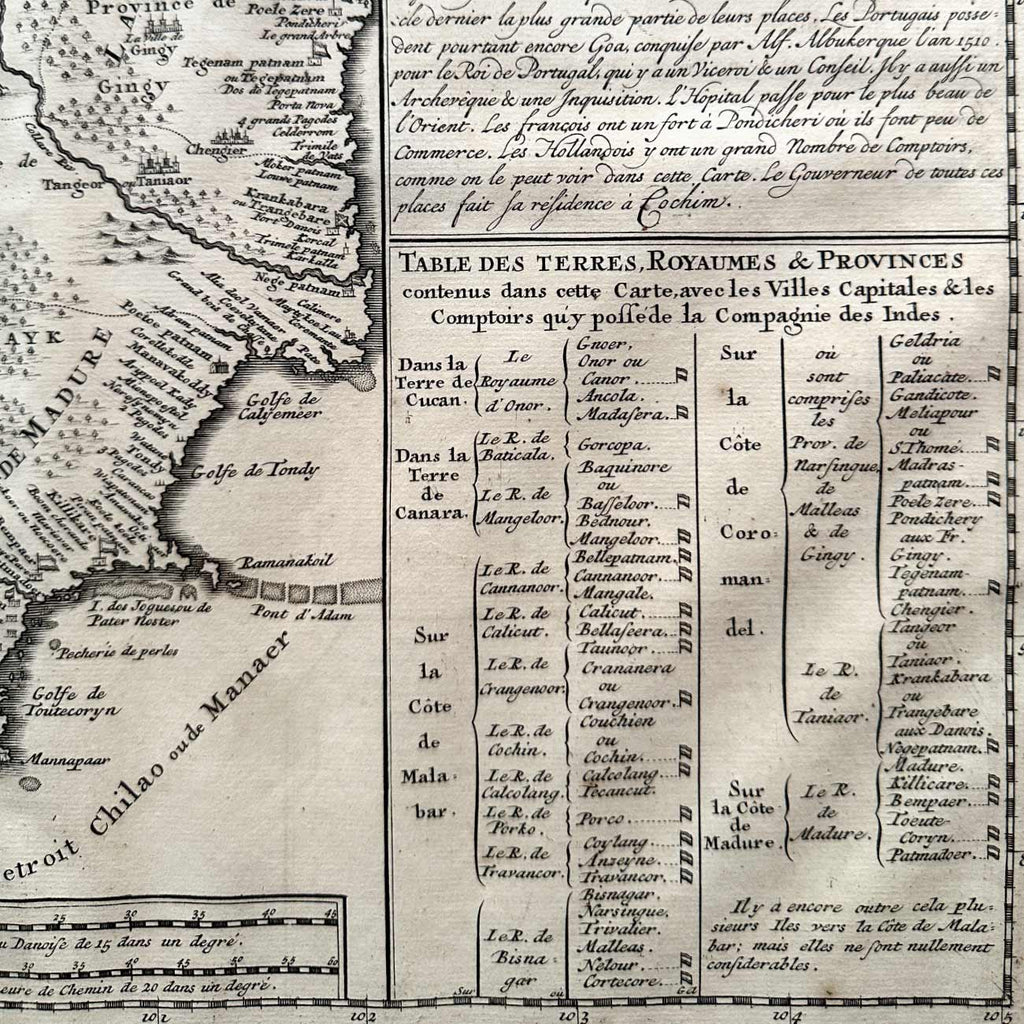 Province de
Poele Zere
Pondicheri
Le grand Arbre
La Ville de
Gingy
Gingy
Tegenam patnam
ou Tegepatnam
Dos de Tegepatnam
Porta Nova
4 grands Pagodes
Celderrom
Trimile
de Vats
Chengier
Moker patnam
Louwe patnam
de
Tangeor ou Taniaor
Krankabara
ou Trangebare
Fort Danois
Korcal
Trimele patnam
Karkalla
Nege patnam
AYK
DE MADURE
Golfe de
Calyemeer
Golfe de Tondy
Ramanakoil
Pont d'Adam
I. des Joguesou de
Pater Noster
Pecherie de perles
Golfe de
Toutecoryn
Mannapaar
etroit Chilao ou de Manaer
25 30 35 40 45
u Danoise de 15 dans un degré.
30 35 40 45 50 55 60
eure de Chemin de 20 dans un degré.
101 102 103 104 105
cle dernier la plus grande partie de leurs places. Les Portugais posse-
dent pourtant encore Goa, conquise par Alf. Albukerque l'an 1510.
pour le Roi de Portugal, qui y a un Viceroi & un Conseil. Il y a aussi un
Archevêque & une Inquisition. L'Hôpital passe pour le plus beau de
l'Orient. Les françois ont un fort à Pondicheri où ils font peu de
Commerce. Les Hollandois y ont un grand Nombre de Comptoirs,
comme on le peut voir dans cette Carte. Le Gouverneur de toutes ces
places fait sa résidence à Cochim.
TABLE DES TERRES, ROYAUMES & PROVINCES
contenus dans cette Carte, avec les Villes Capitales & les
Comptoirs qu'y possède la Compagnie des Indes.
Dans la
Terre de
Cucan.
Le
Royaume
d'Onor.
Gnoer,
Onor ou
Canor
Ancola.
Madasera.
Dans la
Terre
de
Canara.
Le R. de
Baticala.
Gorcopa.
Le R. de
Mangeloor.
Baquinore
ou
Basseloor.
Bednour.
Mangeloor.
Sur
la
Côte
de
Mala-
bar.
Le R. de
Cannanoor.
Bellepatnam.
Cannanoor.
Mangale.
Le R. de
Calicut.
Calicut.
Bellaseera.
Taunoor.
Le R. de
Crangenoor.
Crananera
ou
Crangenoor.
Le R. de
Cochin.
Couchien
ou
Cochin.
Le R. de
Calcolang.
Calcolang
Tecancut.
Le R. de
Porko.
Porco.
Le R. de
Travancor.
Coylang.
Anzeyne.
Travancor.
Le R. de
Bisna-
gar
Bisnagar.
Narsingue.
Trivalier.
Malleas.
Nelour.
Cortecore.
Sur
la
Côte
de
Coro-
man-
del.
où
sont
comprises
les
Prov. de
Narsingue,
de
Malleas
& de
Gingy.
Geldria
ou
Paliacate.
Gandicote.
Meliapour
ou
S. Thomé.
Madras-
patnam.
Poele Zere.
Pondichery
aux Fr.
Gingy.
Tegenam-
patnam.
Chengier.
Le R.
de
Taniaor.
Tangeor
ou
Taniaor.
Krankabara
ou
Trangebare
aux Danois.
Negepatnam.
Sur
la Côte
de
Madure.
Le R.
de
Madure.
Madure.
Killicare.
Bempaer.
Toeute-
Coryn.
Patmadoer.
Il y a encore outre cela plu-
sieurs Iles vers la Côte de Mala-
bar; mais elles ne sont nullement
considerables.